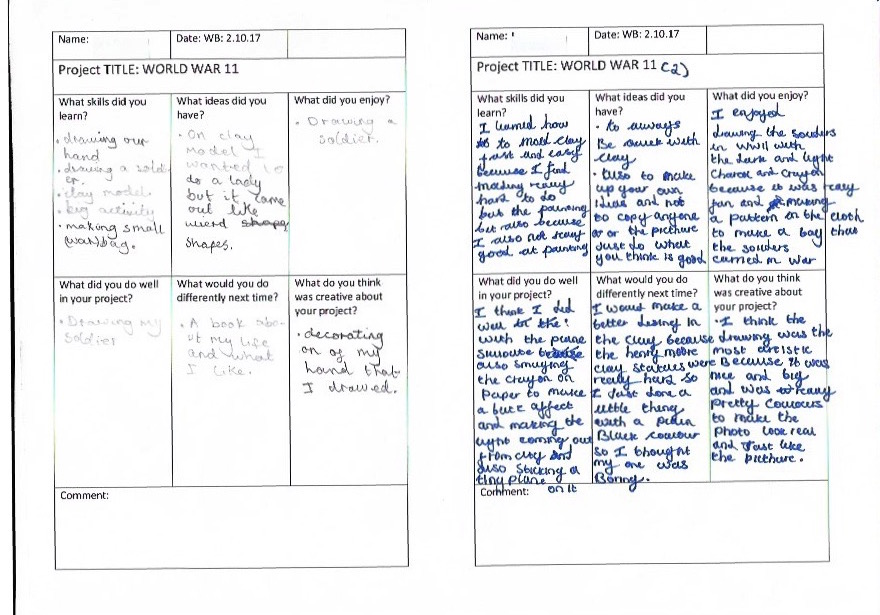 Name:
Date: WB: 2.10.17
Project TITLE: WORLD WAR 11
What skills did you
learn?
• drawing our
hand
• drawing a sold-
er.
• clay model.
• big activity
• making small
(war) bag.
What ideas did you
have?
• On clay
model I
wanted to
do a lady
but it came
out like
wierd shape
shapes.
What did you enjoy?
• Drawing a
soldier.
What did you do well
in your project?
• Drawing my
soldier
What would you do
differently next time?
• A book abo-
ut my life
and what
I like.
What do you think
was creative about
your project?
• decorating
on of my
hand that
I drawed.
Comment:
Name:
Date: WB: 2.10.17
Project TITLE: WORLD WAR 11 (2)
What skills did you
learn?
I learned how
to mold clay
fast and easy
because I find
making really
hard to do
but the painting
but also because
I also not really
good at painting
What ideas did you
have?
• to always
Be quick with
clay
• Also to make
up your own
ideas and not
to copy anyone
or the picthure
Just do what
you think is good
What did you enjoy?
I enjoyed
drawing the souders
in WWII with
the dark and light
Charcol and crayon
because it was realy
fun and making
a pattern on the cloth
to make a bag that
the souders
carried in war
What did you do well
in your project?
I think I did
well
with the plane
also smuging
the crayon on
Paper to make
a affect
and making the
light coming out
from city and
also Sticking a
tiny plane
on it
What would you do
differently next time?
I would make a
better desing in
the clay because
the henry moore
clay statues were
really hard so
I Just done a
little thing
with a plain
Black colour
so I thought
my one was
Boring.
What do you think
was creative about
your project?
• I think the
drawing was the
most artistic
Because it was
nice and big
and was really
Pretty Colours
to make the
Photo look real
and Just like
the picthure.
Comment: